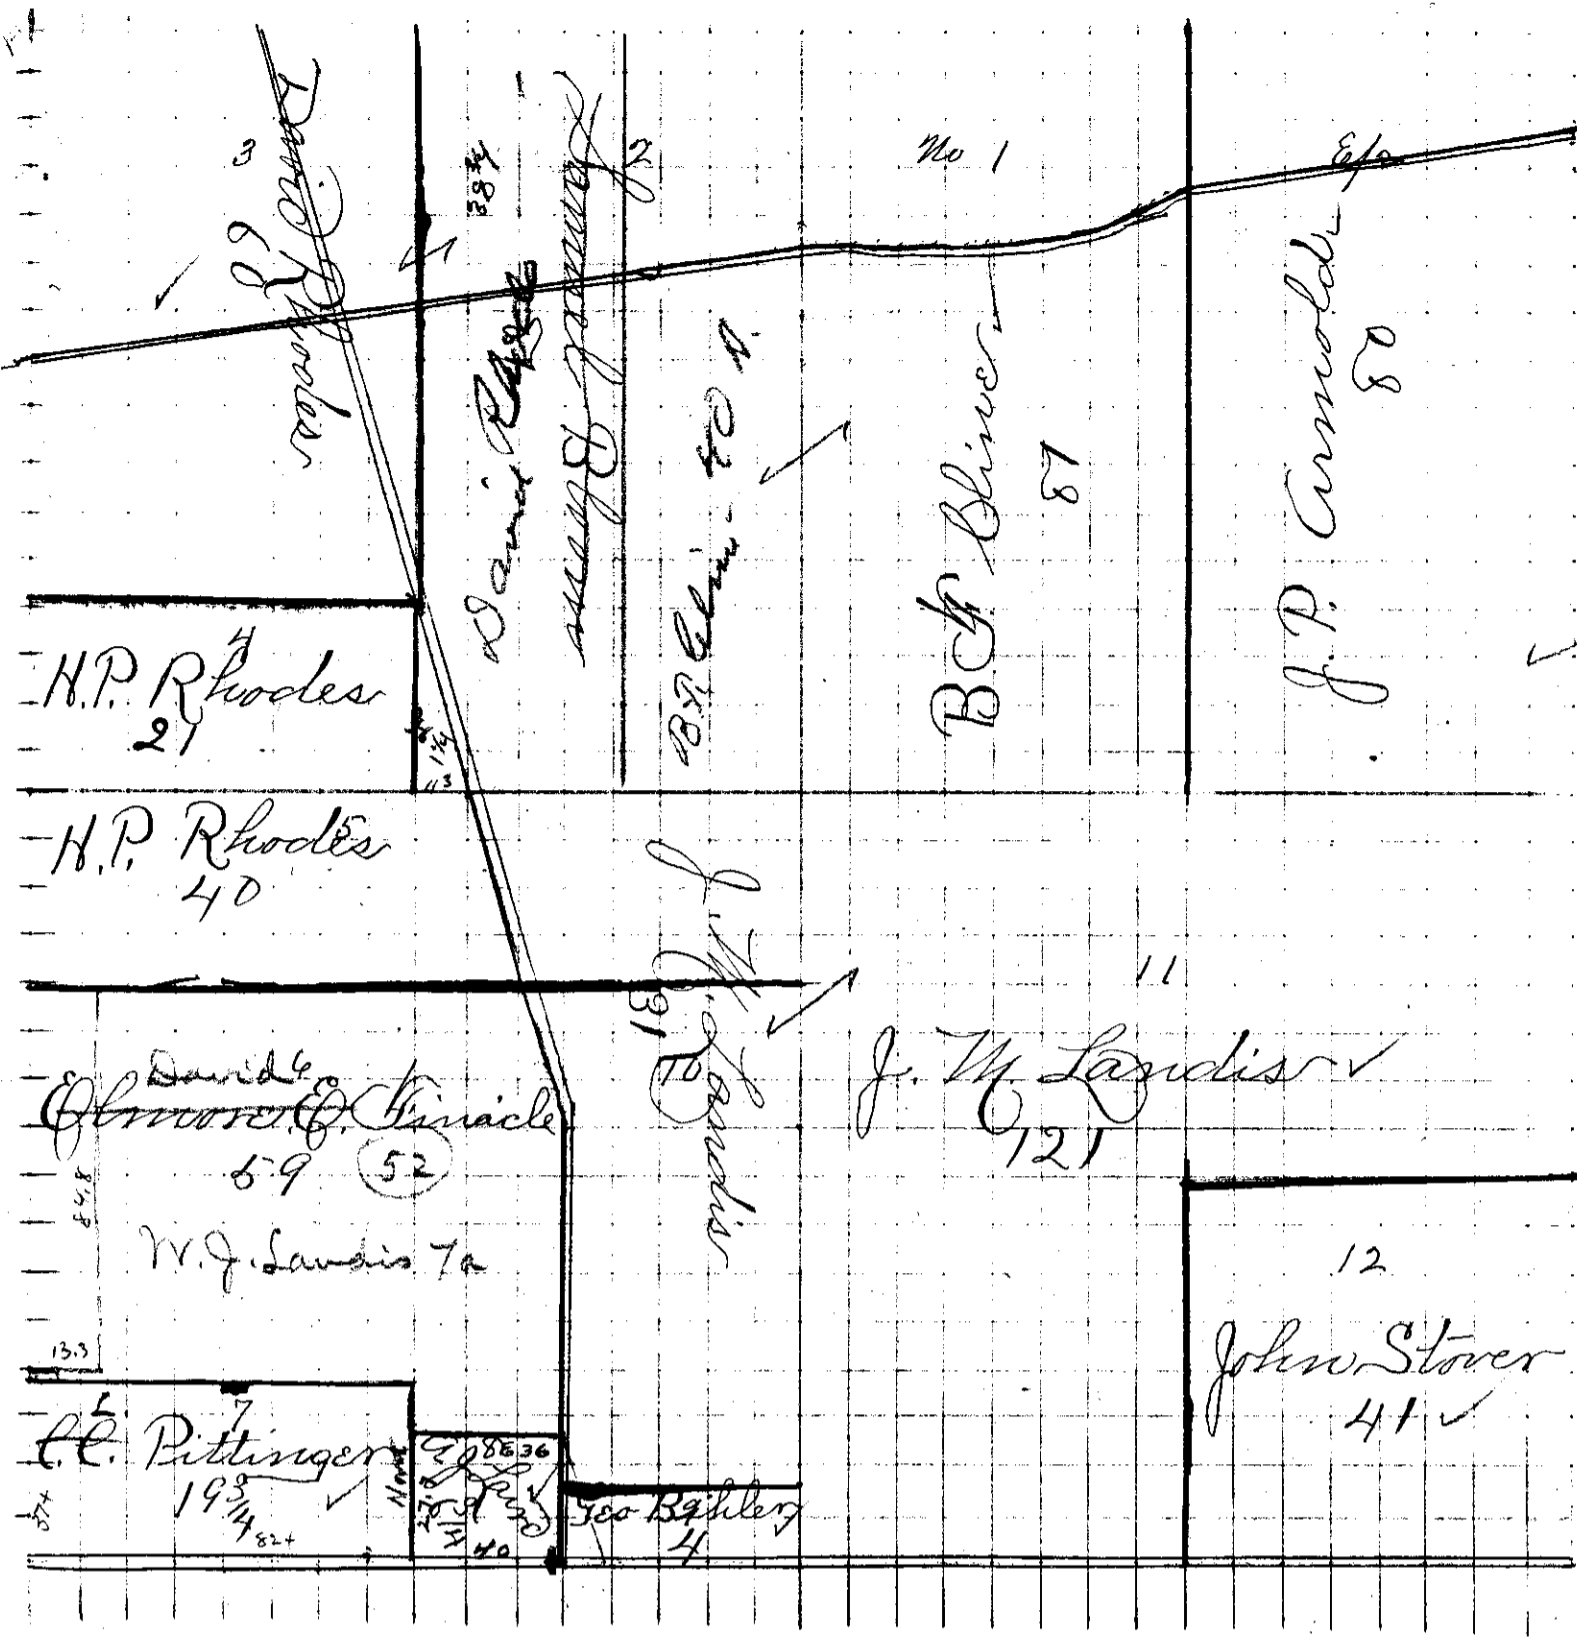 3
David Rhodes
69
38¾
2
B.F. Cline 40 A.
No 1
B F Cliver
87
E/2
J. P. Arnold
80
4
H.P. Rhodes
21
1¾
H.P. Rhodes
5
40
J. M. Landis
31
10
11
J. M. Landis
121
David 6
Elmore E. Finacle
59 52
84.8
W. J. Landis 7a
13.3
12
John Stover
41
7
C.C. Pittinger
19¾
82+
37+
8 E 36
27.2
40
Geo Bahler
9
4